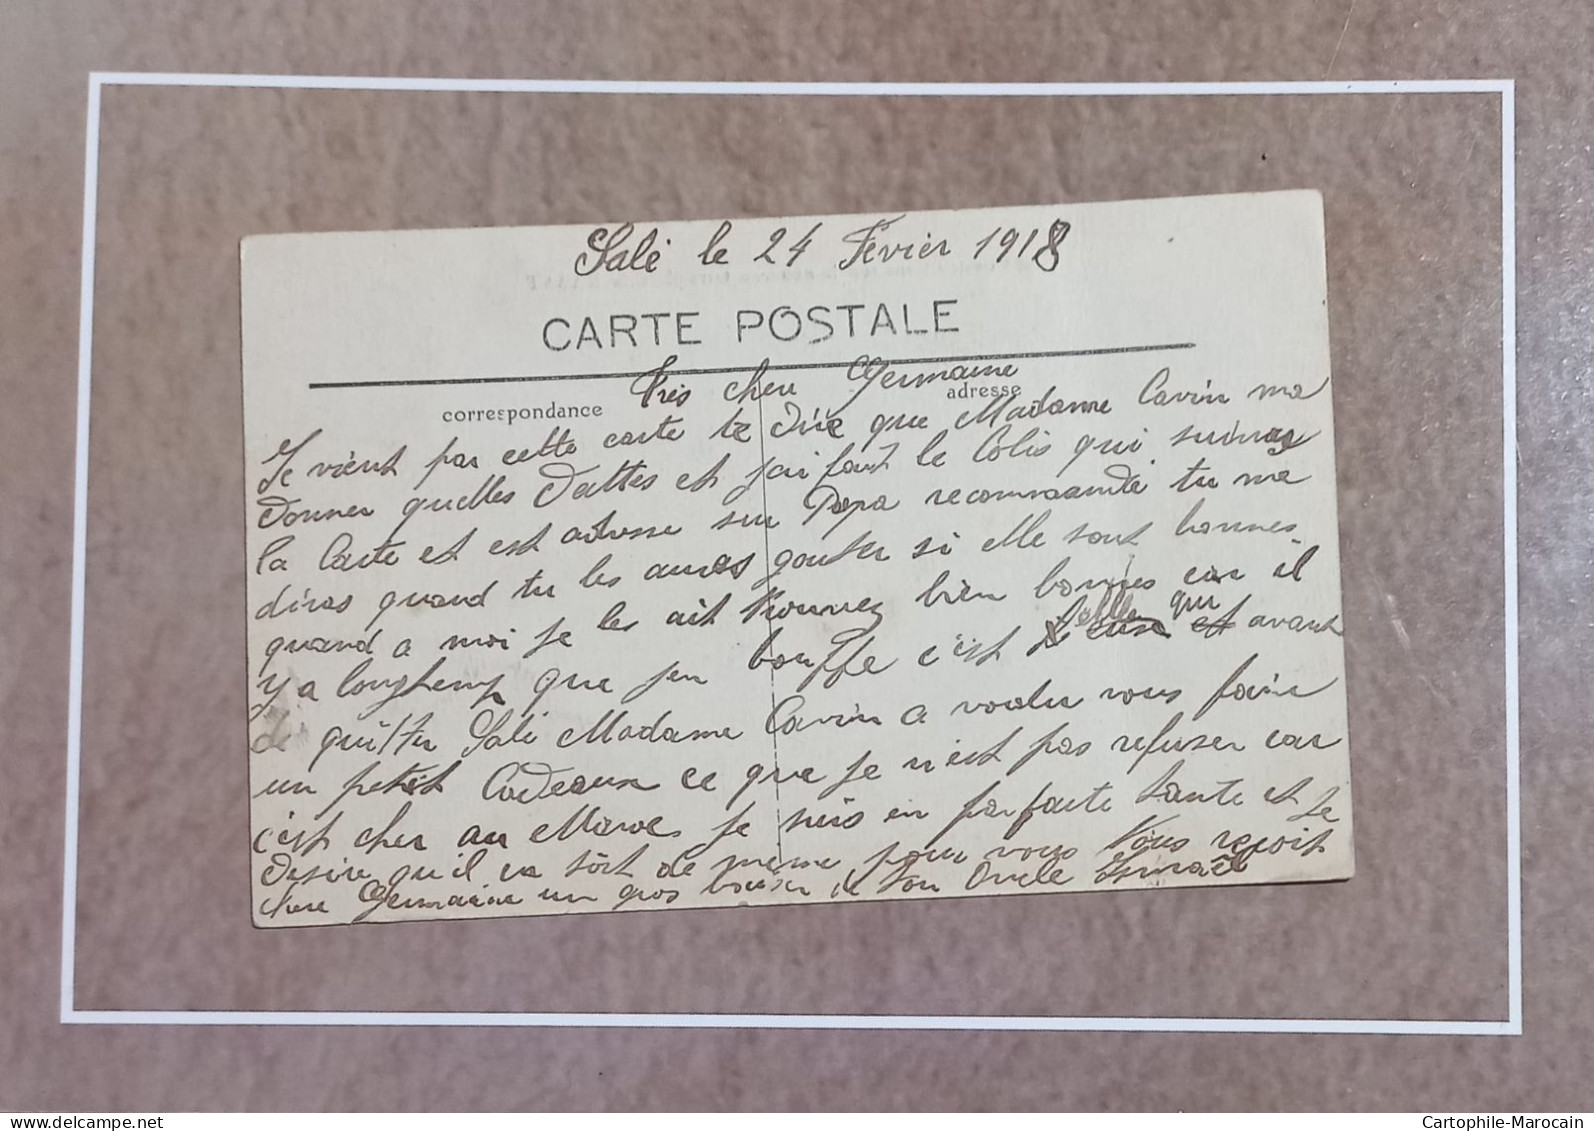 Salé le 24 Févier 1918
CARTE POSTALE
Très chere Germaine
correspondance
adresse
Je vient par cette carte te dire que Madame Cavin ma
donner quelles dattes et j'ai fait le Colis qui suivras
la Carte et est adresse sur Papa recommandé tu me
diras quand tu les auras gouter si elle sont bonnes.
quand a moi je les ait trouver bien bonnes car il
y a longtemp que j'en bouffe c'est celle qui avant
de quitter Salé Madame Cavin a voulu vous faire
un petit Cadeaux ce que je n'est pas refuser car
c'est cher au Maroc, je suis en parfaite Sante et je
desire qu'il en soit de meme pour vous Vous reçoit
chere Germaine un gros baiser de Ton Oncle Ismaël
Cartophile-Marocain